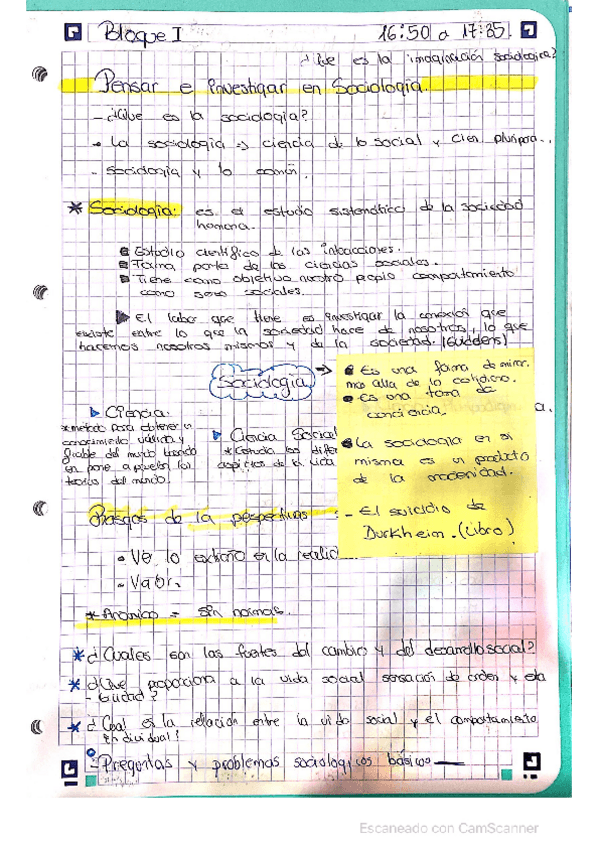 Bloque I 16:50 a 17:35
¿Que es la imaginación sociologica?
Pensar e investigar en Sociología.
- ¿Que es la sociología?
• La sociología => ciencia de lo social y cien pluripara..
- sociología y lo común.
* Sociología: es el estudio sistemático de la sociedad
humana.
Estudio científico de las interacciones.
Forma parte de las ciencias sociales.
Tiene como objetivo nuestro propio comportamiento
como seres sociales.
El labor que tiene es investigar la conexión que
existe entre lo que la sociedad hace de nosotros, lo que
hacemos nosotros mismos y de la sociedad. (Giddens)
Sociología →
• Es una forma de mirar
mas alla de lo cotidiano.
• Es una forma de
conciencia.
• La sociología en si
misma es un producto
de la modernidad.
- El suicidio de
Durkheim. (Libro)
Ciencia:
*metodo para obtener un
conocimiento válido y
fiable del mundo
en pone a prueba las
teorias del mundo.
Ciencia Social
* Ciencia las difer
aspectos de la vida
a.
Rasgos de la perspectiva
• Ver lo extraño en la realid
• Valor.
* Anomico = sin normas.
* ¿Cuales son las fuentes del cambio y del desarrollo social?
* ¿Que proporciona a la vida social sensación de orden y esta
-bilidad?
* ¿Cual es la relación entre la vida social y el comportamiento
individual?
- Preguntas y problemas sociologicos básicos
Escaneado con CamScanner